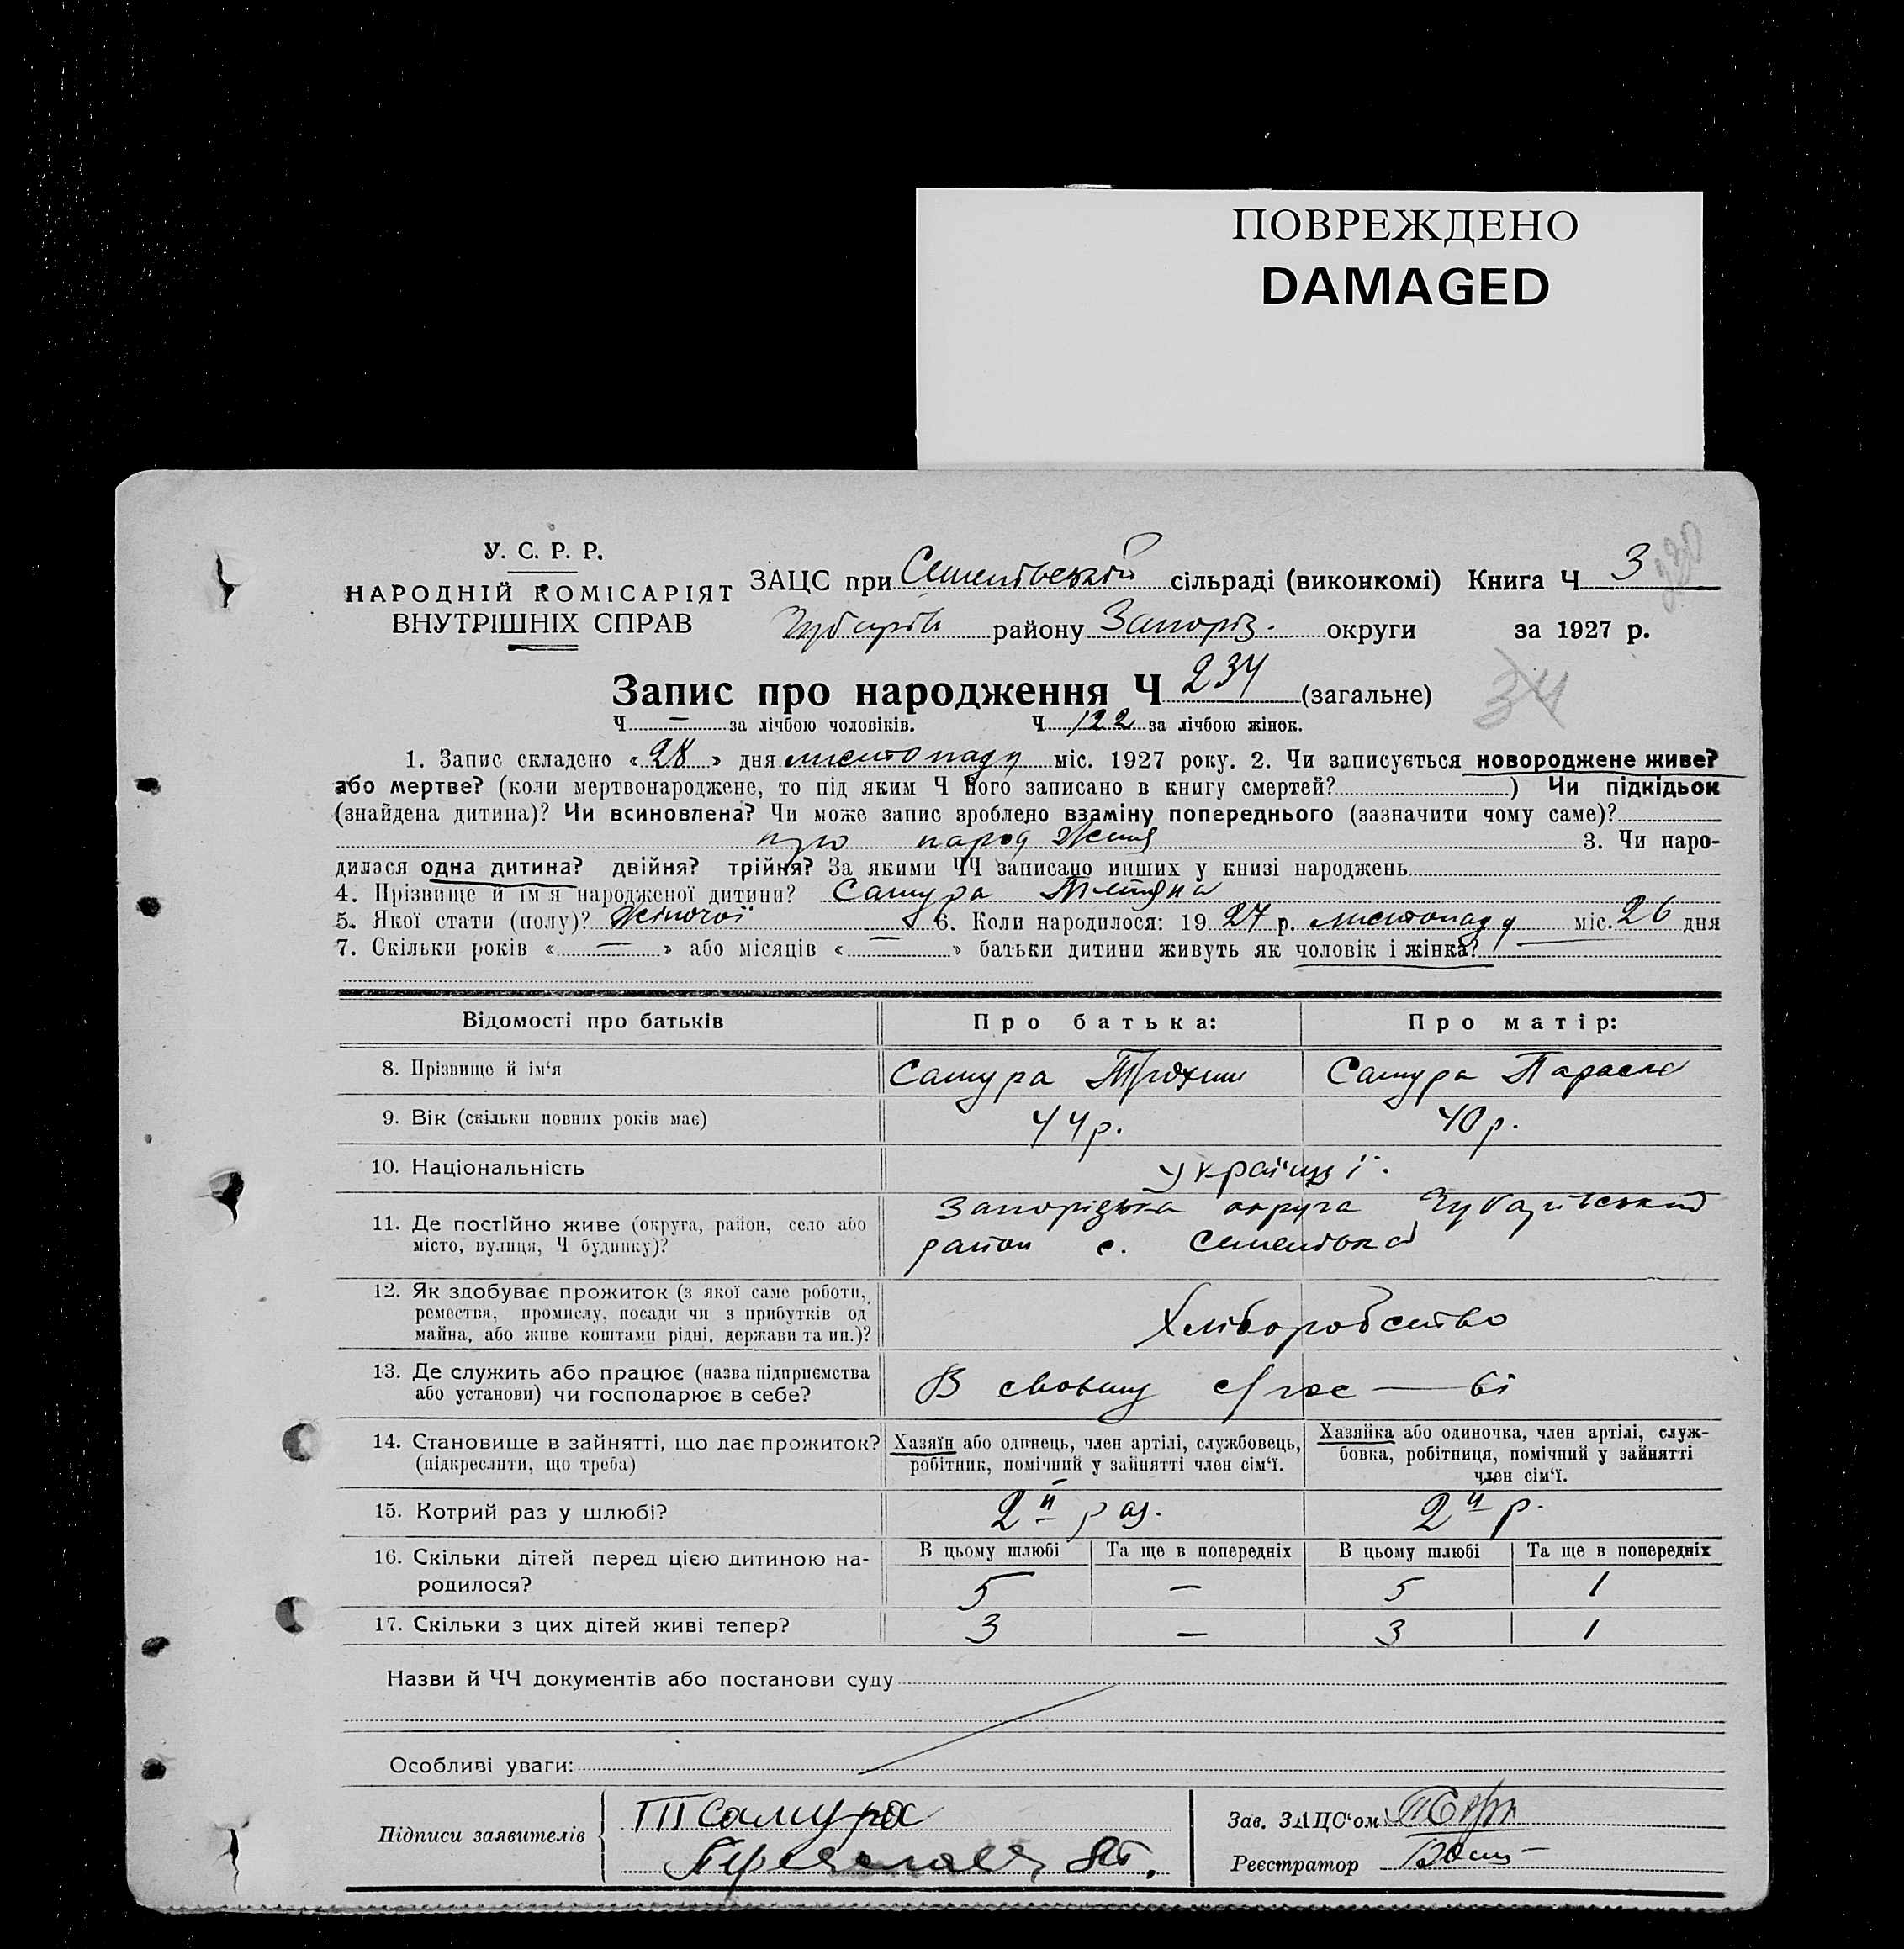 ПОВРЕЖДЕНО
DAMAGED
У. С. Р. Р.
НАРОДНІЙ КОМІСАРІЯТ
ВНУТРІШНІХ СПРАВ
ЗАЦС при Семенівській сільраді (виконкомі) Книга Ч 3
району Запоріз. округи за 1927 р.
Запис про народження Ч 234 (загальне)
34
Ч — за лічбою чоловіків. Ч 122 за лічбою жінок.
1. Запис складено « 28 » дня листопаду міс. 1927 року. 2. Чи записується новороджене живе?
або мертве? (коли мертвонароджене, то під яким Ч його записано в книгу смертей? ) Чи підкідьок
(знайдена дитина)? Чи всиновлена? Чи може запис зроблено взаміну попереднього (зазначити чому саме)?
про народження 3. Чи наро-
дилася одна дитина? двійня? трійня? За якими ЧЧ записано инших у книзі народжень
4. Прізвище й ім'я народженої дитини? Самура Тетяна
5. Якої стати (полу)? Жіночої 6. Коли народилося: 19 27 р. листопаду міс. 26 дня
7. Скільки років « — » або місяців « — » батьки дитини живуть як чоловік і жінка?
Відомості про батьків Про батька: Про матір:
8. Прізвище й ім'я Самура Трохим Самура Параска
9. Вік (скільки повних років має) 44 р. 40 р.
10. Національність українці.
11. Де постійно живе (округа, район, село або
місто, вулиця, Ч будинку)?
Запорізька округа
район с. Семенівка
12. Як здобуває прожиток (з якої саме роботи,
ремества, промислу, посади чи з прибутків од
майна, або живе коштами рідні, держави та ин.)?
Хліборобство
13. Де служить або працює (назва підприємства
або установи) чи господарює в себе?
В своєму с/гос—ві
14. Становище в зайнятті, що дає прожиток?
(підкреслити, що треба)
Хазяїн або одинець, член артілі, службовець,
робітник, помічний у зайнятті член сім'ї.
Хазяйка або одиночка, член артілі, служ-
бовка, робітниця, помічний у зайнятті
член сім'ї.
15. Котрий раз у шлюбі? 2й раз. 2й р.
16. Скільки дітей перед цією дитиною на-
родилося?
В цьому шлюбі Та ще в попередніх В цьому шлюбі Та ще в попередніх
5 — 5 1
17. Скільки з цих дітей живі тепер? 3 — 3 1
Назви й ЧЧ документів або постанови суду
Особливі уваги:
Підписи заявителів Т Самура
Зав. ЗАЦС'ом
Реєстратор